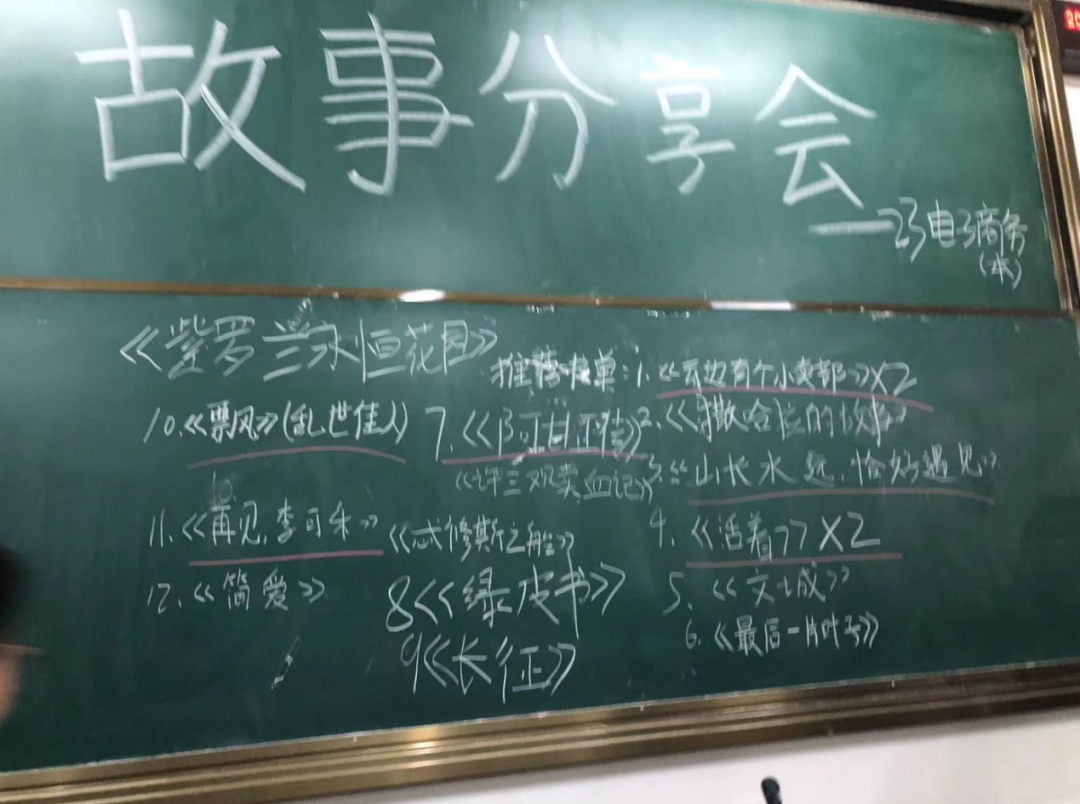 故事分享会
——23电子商务
(本)
《紫罗兰永恒花园》
推荐 单:1.《云边有个小卖部》X2
10.《飘风》(乱世佳人)
7.《阿甘正传》
2.《撒哈拉的故事》
《许三观卖血记》
3.《山长水远,恰好遇见》
11.《再见,李可乐》
《忒修斯之船》
4.《活着》X2
12.《简爱》
8《绿皮书》
5.《文城》
6.《最后一片叶子》
9《长征》